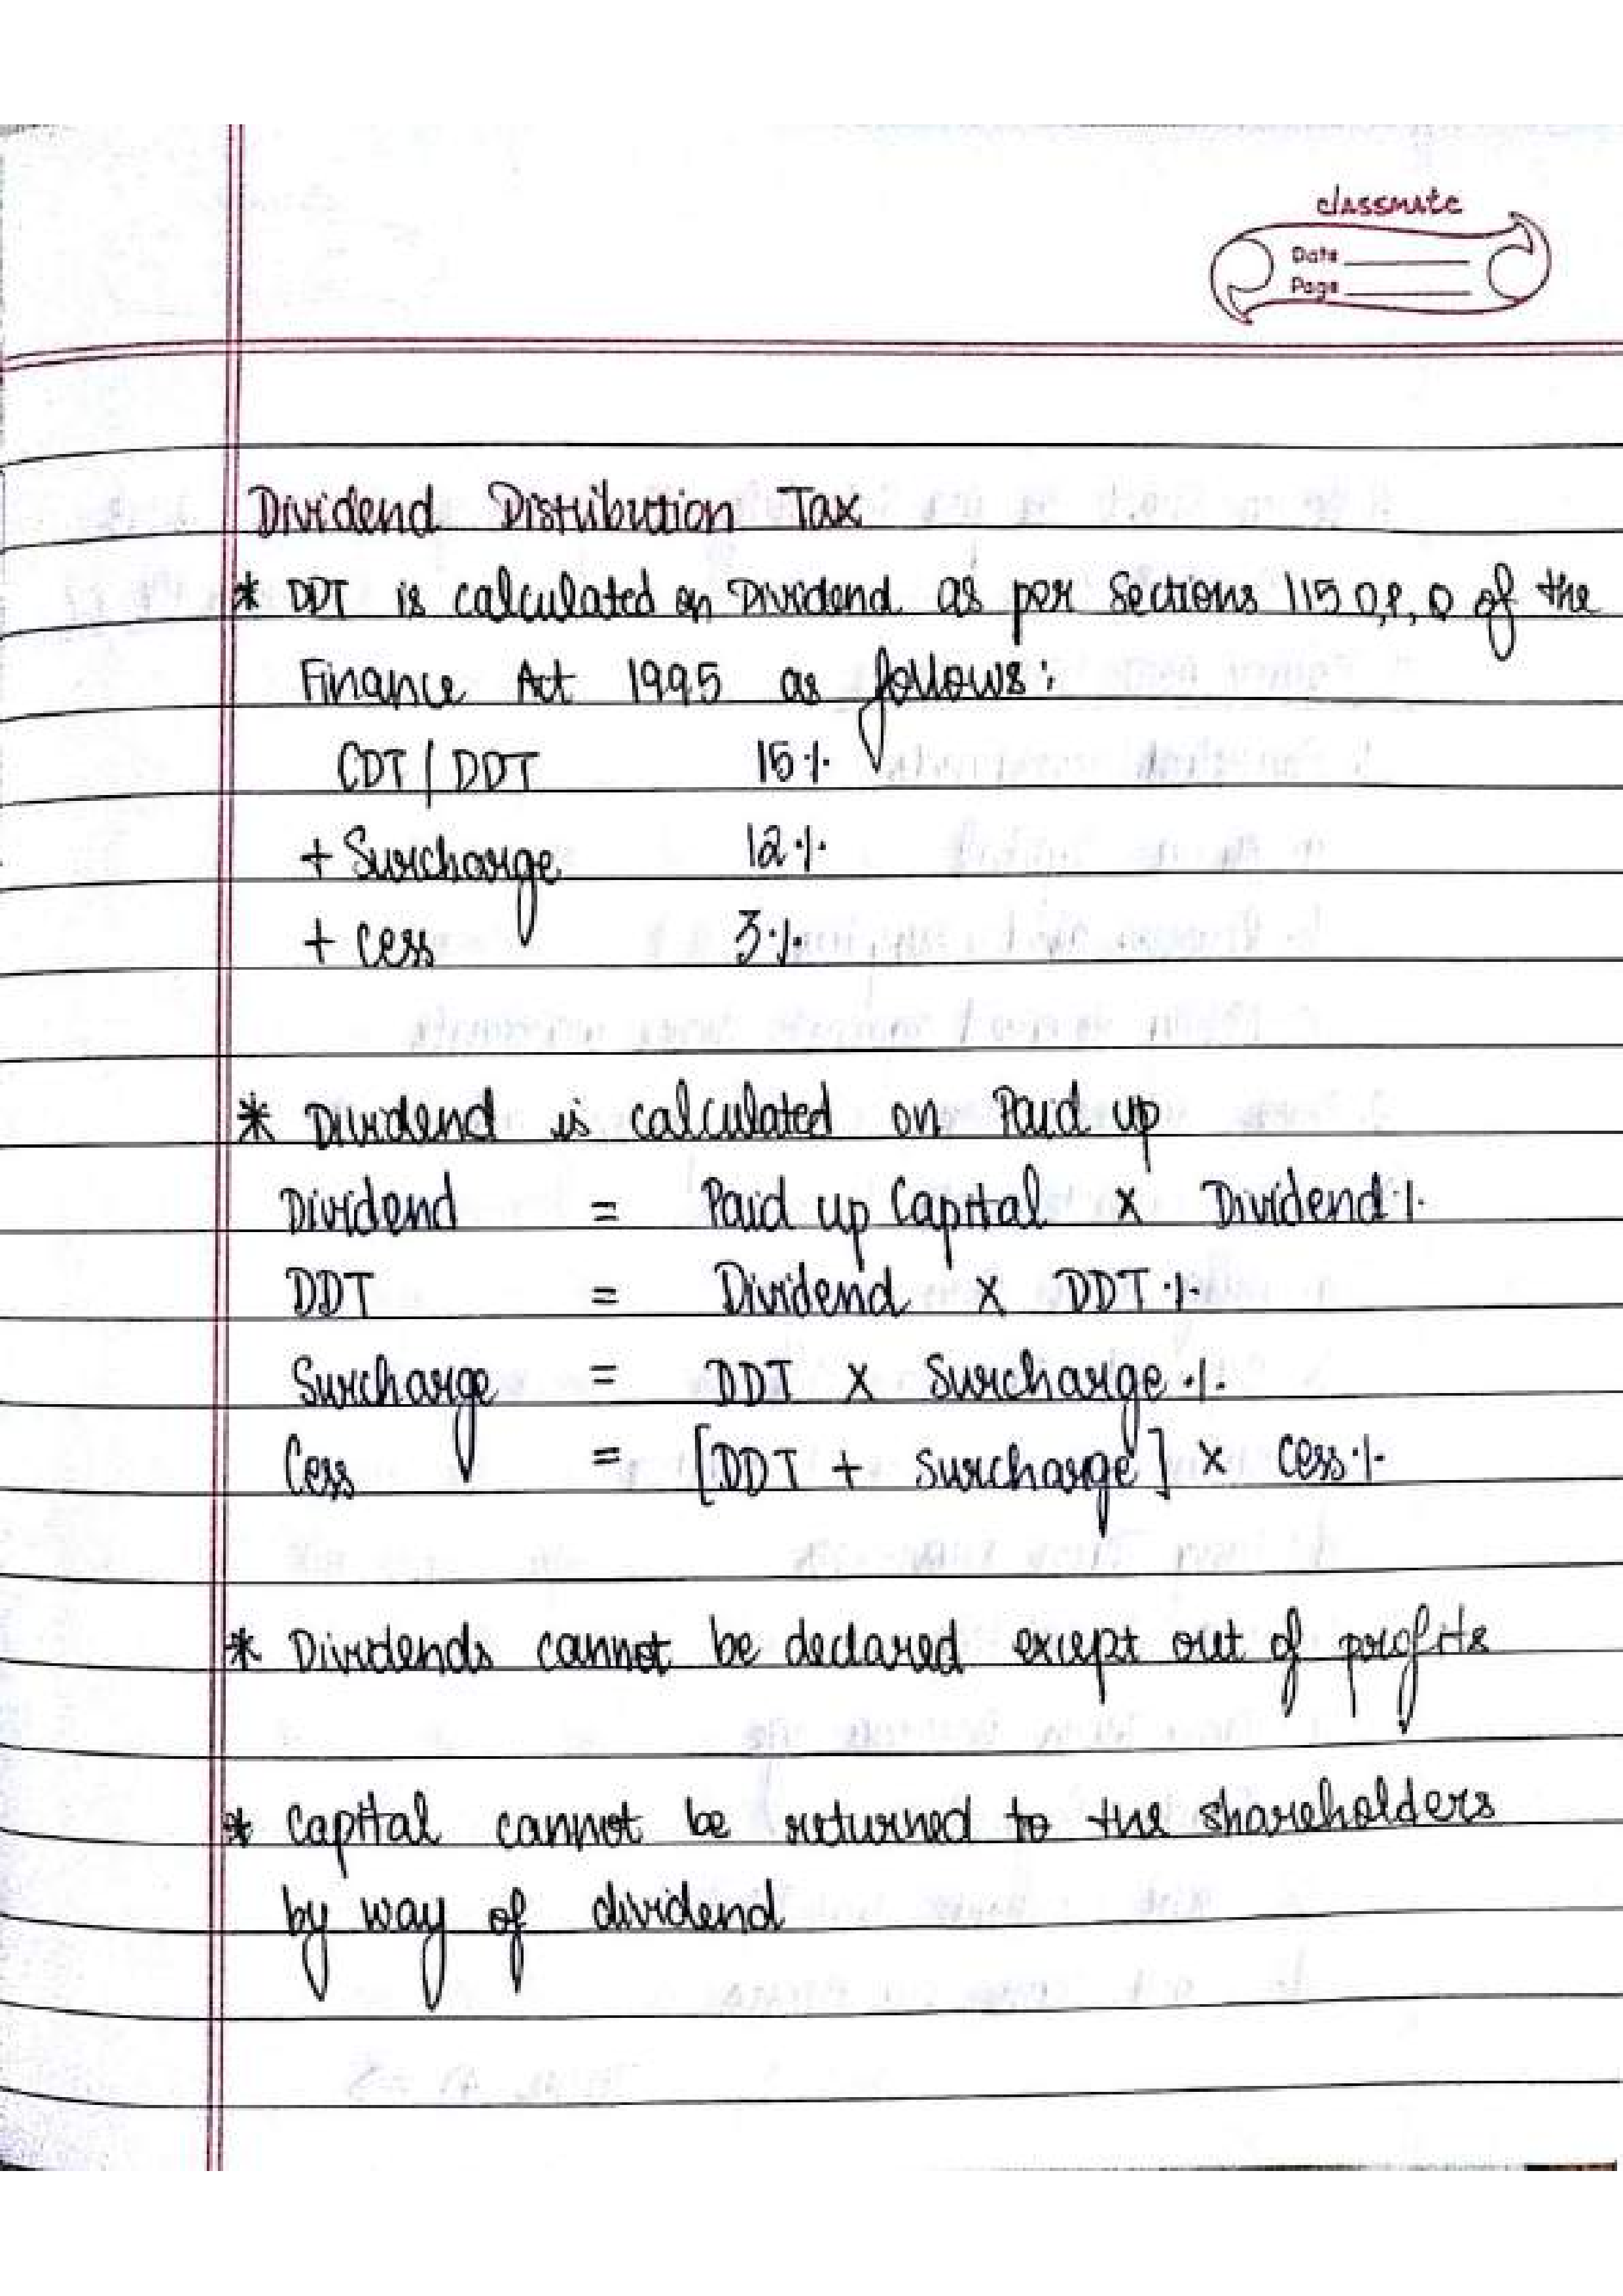 classmate
Date
Page
Dividend Distribution Tax
* DDT is calculated on Dividend as per Sections 115 O,P,Q of the
Finance Act 1995 as follows:
CDT / DDT 15%
+ Surcharge 12%
+ Cess 3%
* Dividend is calculated on Paid up
Dividend = Paid up Capital x Dividend %
DDT = Dividend x DDT %
Surcharge = DDT x Surcharge %
Cess = [DDT + Surcharge] x Cess %
* Dividends cannot be declared except out of profits
* Capital cannot be returned to the shareholders
by way of dividend